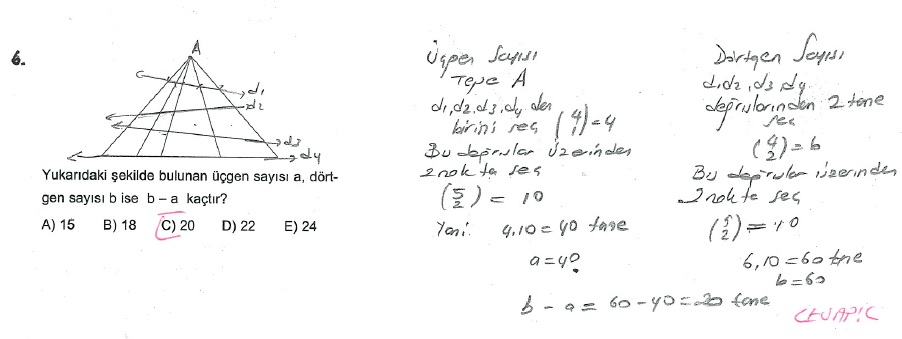 6.
A
d1
d2
d3
d4
Yukarıdaki şekilde bulunan üçgen sayısı a, dört-
gen sayısı b ise b – a kaçtır?
A) 15 B) 18 C) 20 D) 22 E) 24
Üçgen Sayısı
Tepe A
d1,d2,d3,d4 den
birini seç (4 1) = 4
Bu doğrular üzerinden
2 nokta seç
(5 2) = 10
Yani 4.10 = 40 tane
a = 40
Dörtgen Sayısı
d1d2,d3,d4
doğrularından 2 tane
seç
(4 2) = 6
Bu doğrular üzerinden
2 nokta seç
(5 2) = 10
6.10 = 60 tane
b = 60
b – a = 60 – 40 = 20 tane
CEVAP: C